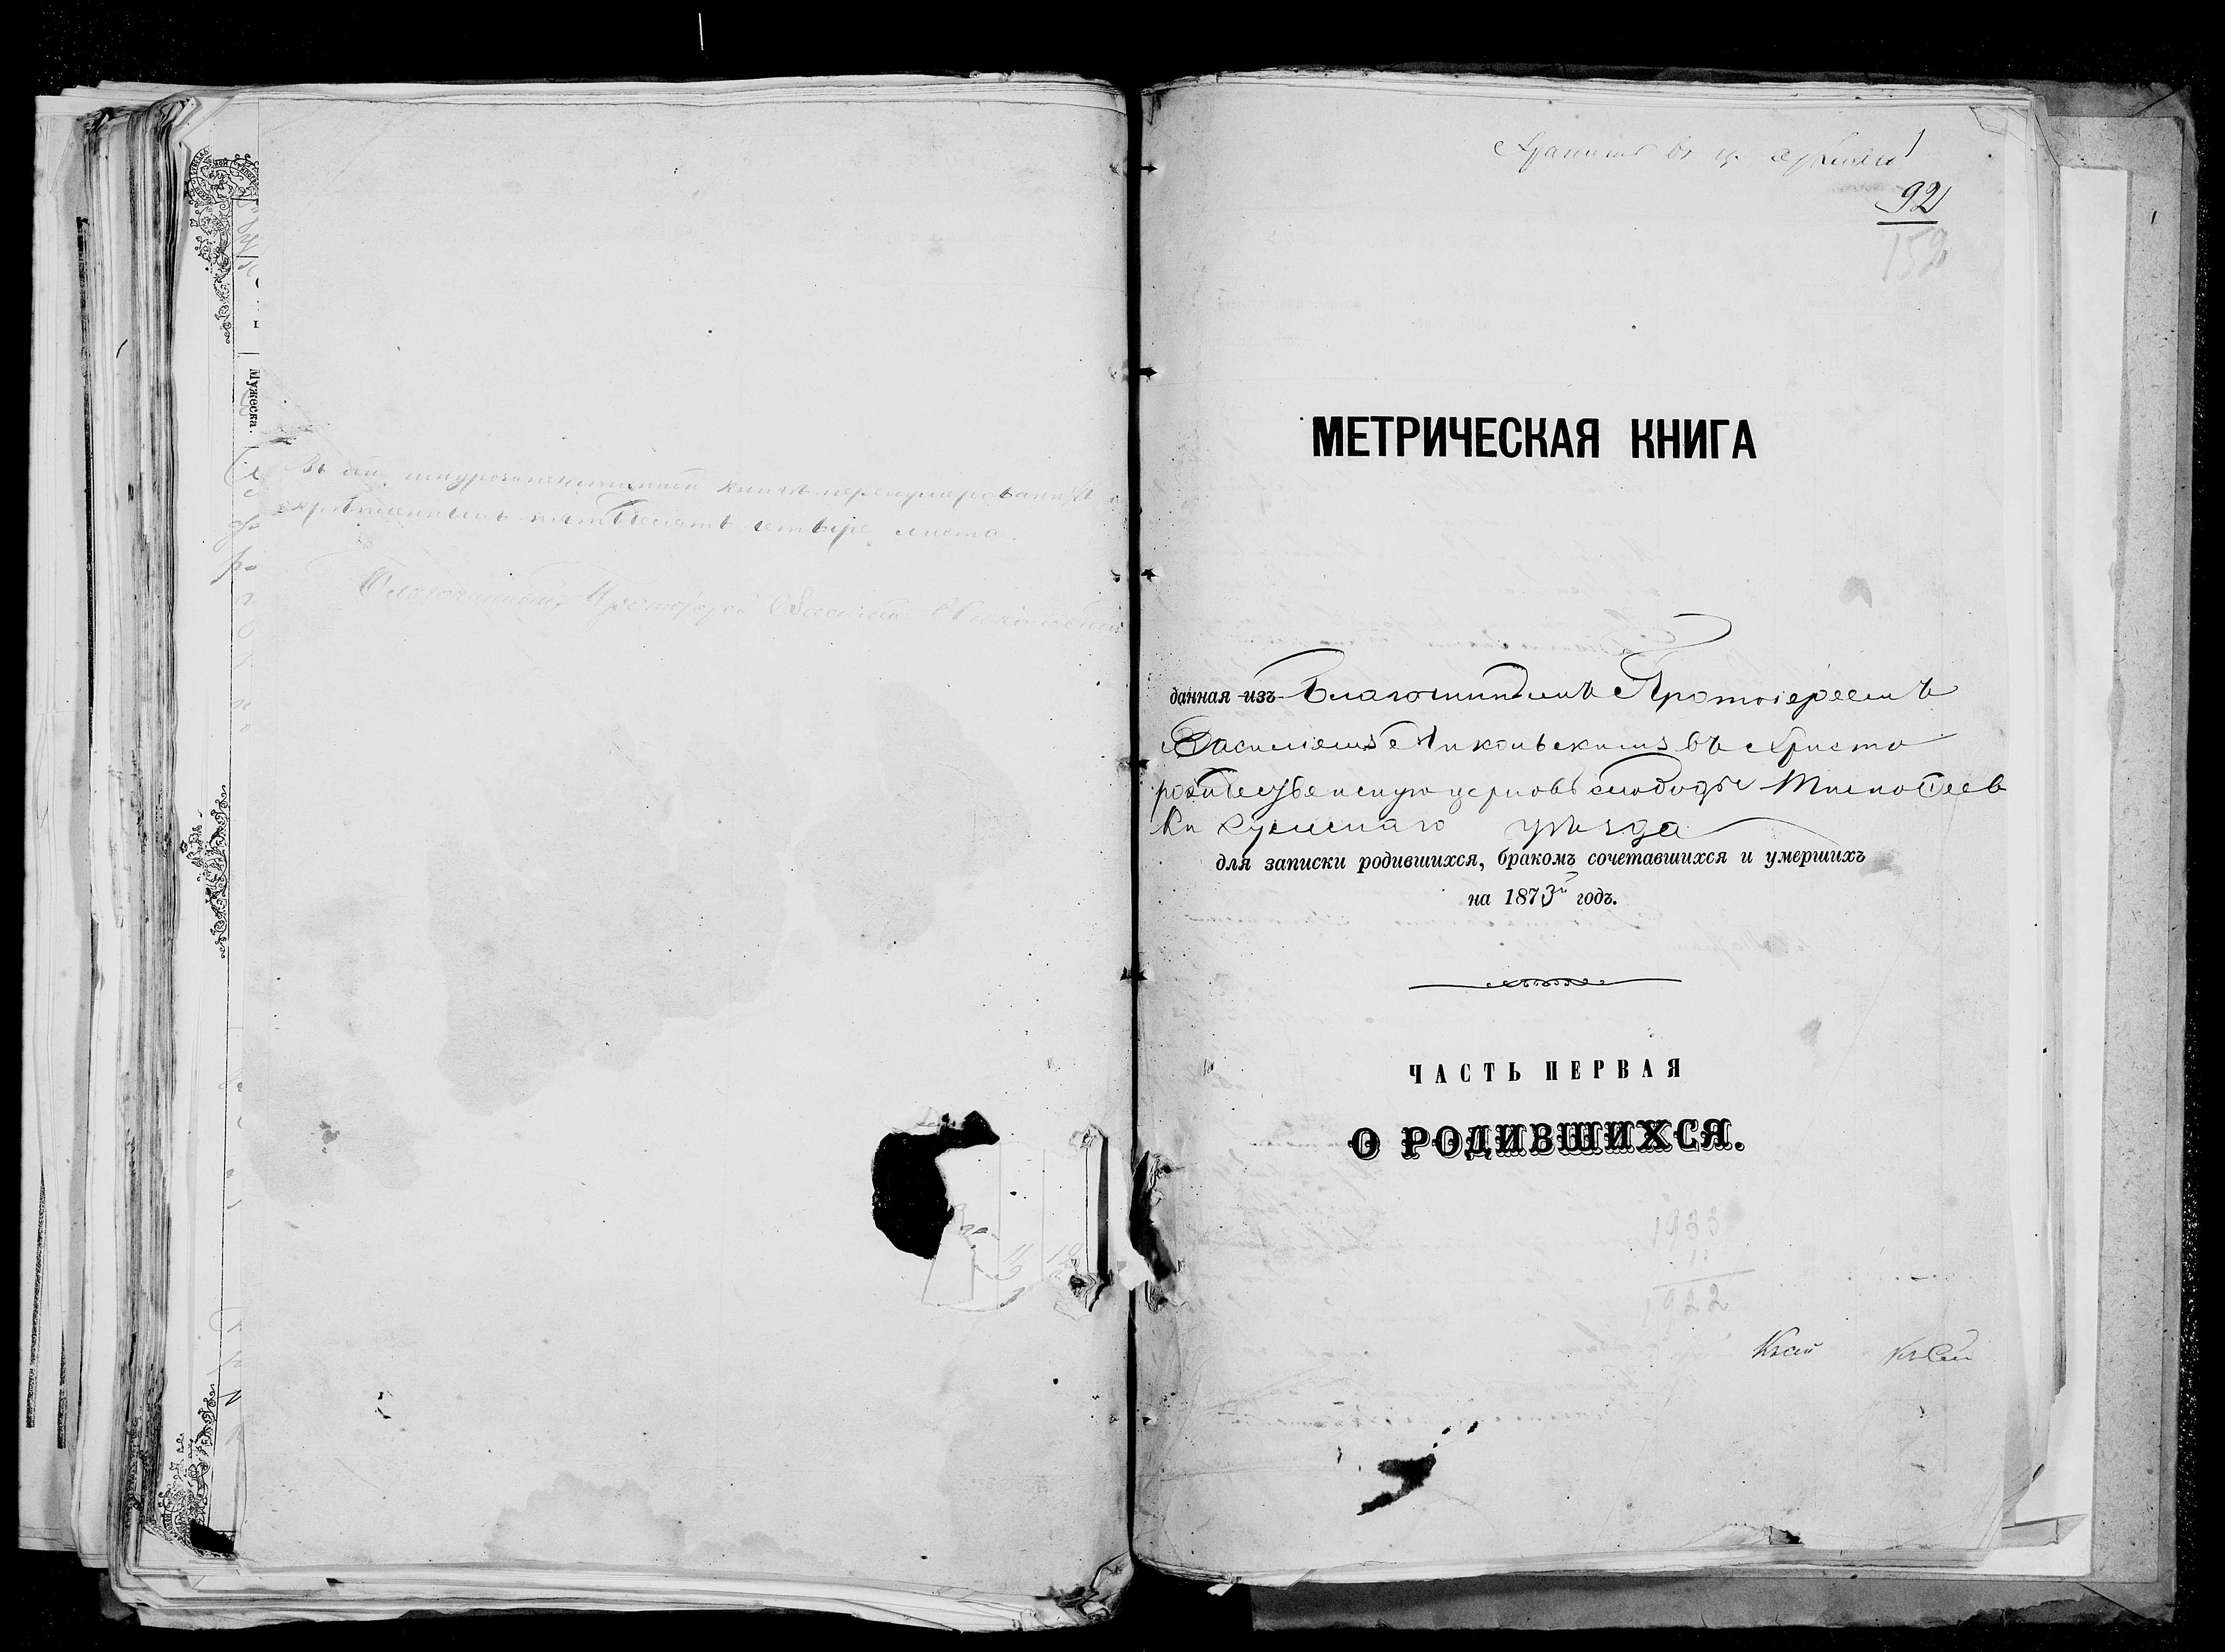 Мужеска.
Въ сей шнурозапечатанной книгѣ перенумерованныхъ
скрѣпленныхъ пятьдесятъ четыре листа.
Благочинный, Протоіерей Василій Никольскій
Хранить въ ц. архивѣ
92
152
МЕТРИЧЕСКАЯ КНИГА
данная изъ Благочиннымъ Протоіереемъ
Василіемъ Никольскимъ въ Христо
рождественскую церковь слободы
уѣзда
для записки родившихся, бракомъ сочетавшихся и умершихъ
на 1873й годъ.
ЧАСТЬ ПЕРВАЯ
О РОДИВШИХСЯ.
1933
11
1922
Къ сей Къ Сей